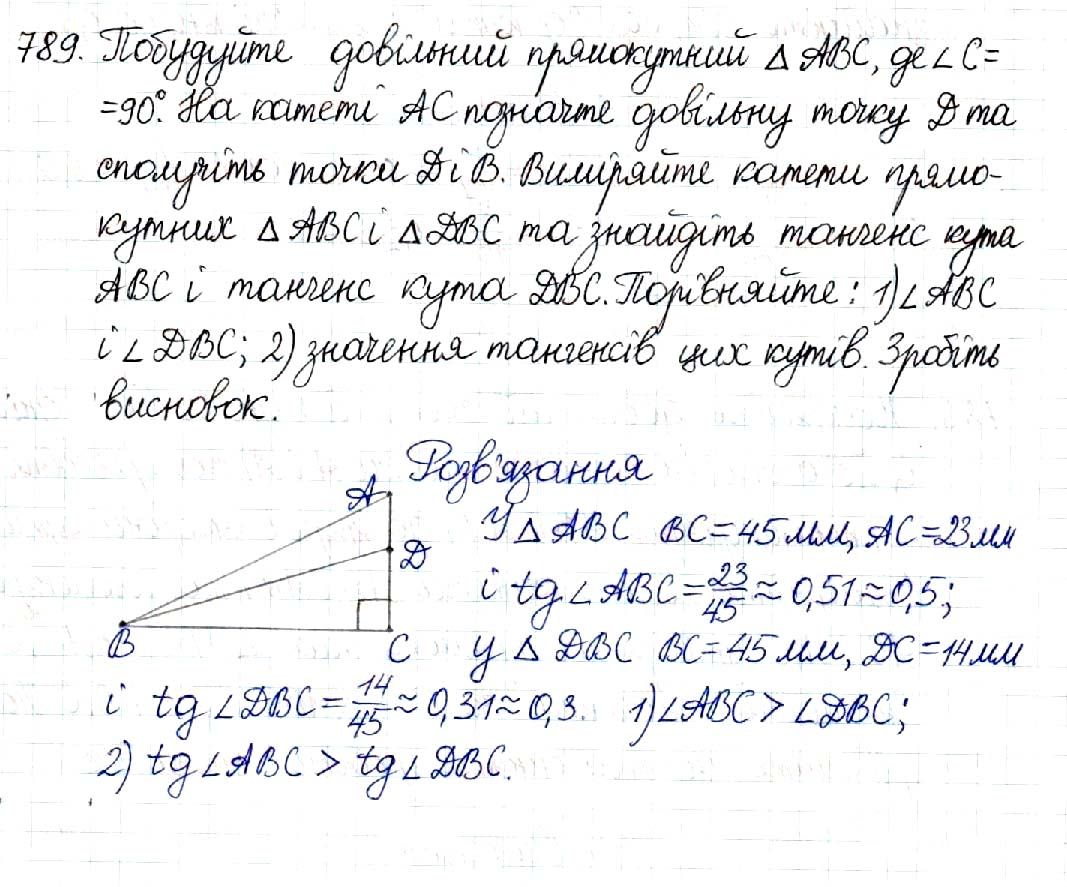 789. Побудуйте довільний прямокутний △ ABC, де ∠ C=
=90°. На катеті AC позначте довільну точку D та
сполучіть точки D і B. Виміряйте катети прямо-
кутних △ ABC і △ DBC та знайдіть тангенс кута
ABC і тангенс кута DBC. Порівняйте: 1) ∠ ABC
і ∠ DBC; 2) значення тангенсів цих кутів. Зробіть
висновок.
Розв'язання
A
D
B
C
У △ ABC BC = 45 мм, AC = 23 мм
і tg ∠ ABC = 23/45 ≈ 0,51 ≈ 0,5;
у △ DBC BC = 45 мм, DC = 14 мм
і tg ∠ DBC = 14/45 ≈ 0,31 ≈ 0,3. 1) ∠ ABC > ∠ DBC;
2) tg ∠ ABC > tg ∠ DBC.